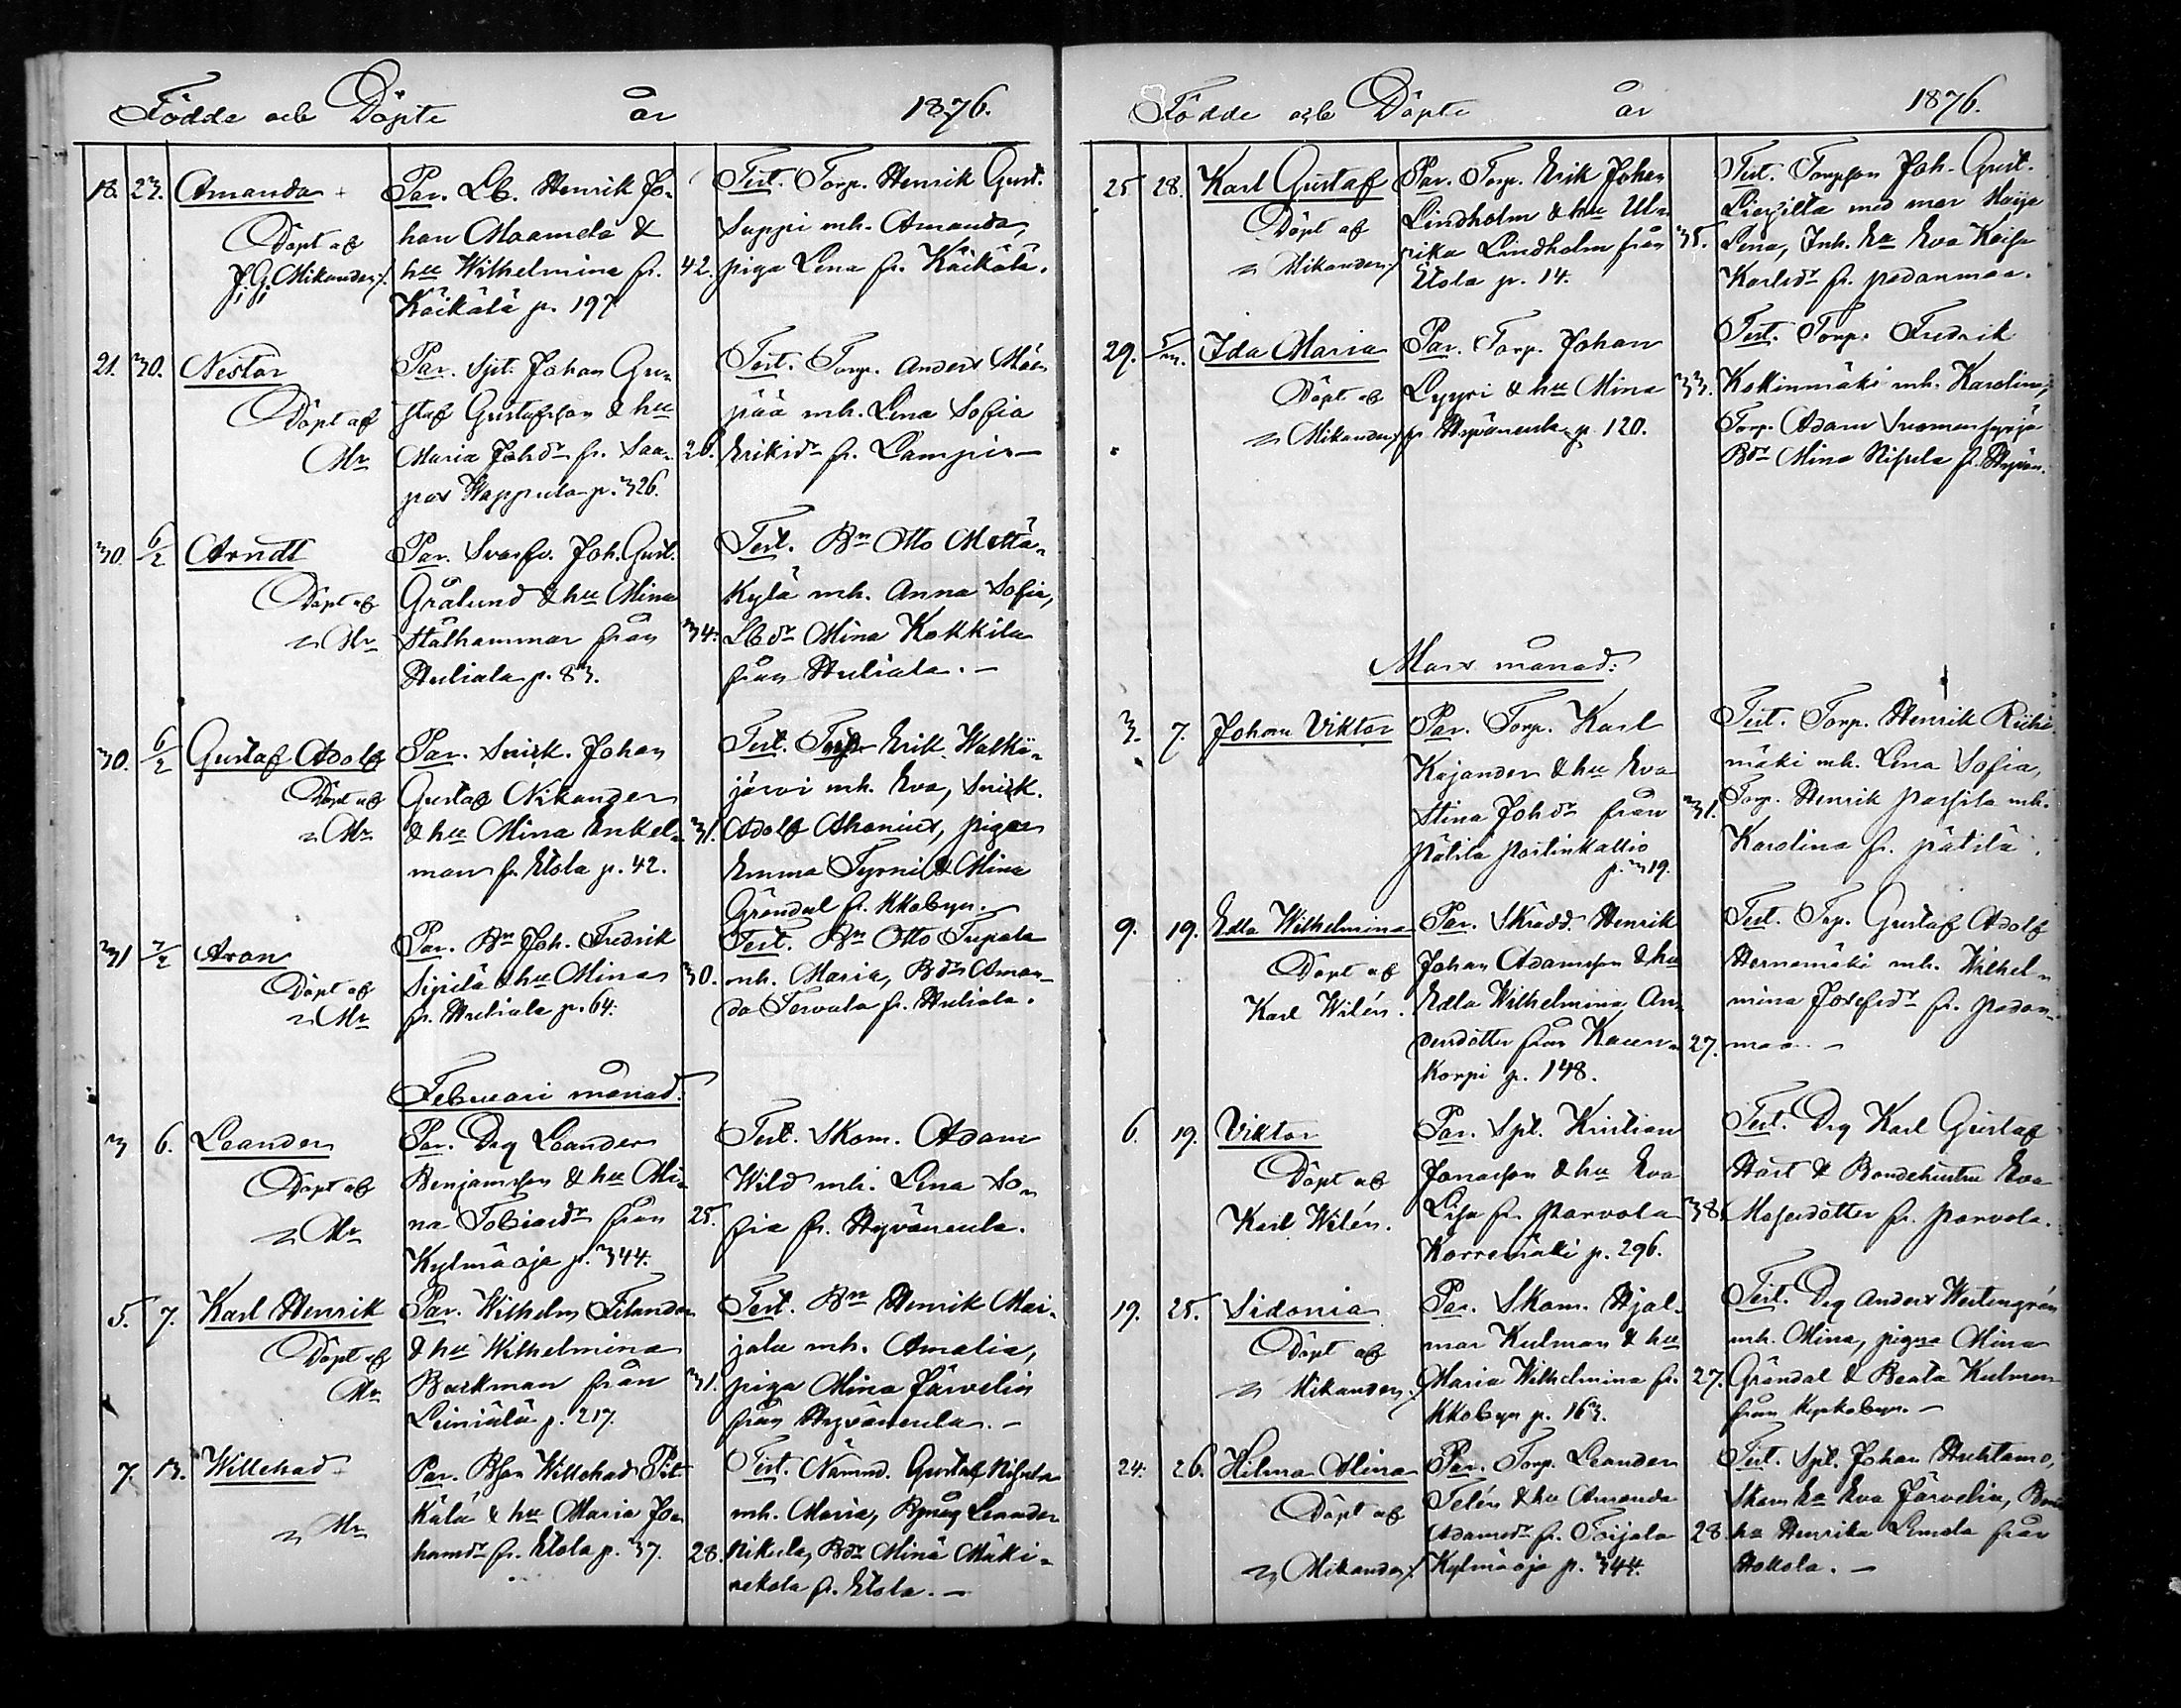 Födde och Döpte år 1876.
18. 23. Amanda
Döpt af
J. G. Mikander
Par. Lb. Henrik Jo-
han Maamela &
hu Wilhelmina fr. 42.
Käikälä p. 197
Test. Torp. Henrik Gust.
Suppi mh. Amanda,
piga Lena fr. Käikälä.
21. 30. Nestor
Döpt af
Mr
Par. Spt. Johan Gu-
staf Gustafsson & hu
Maria Johdr fr. Saa- 26.
pas Wappula p. 326.
Test. Torp. Anders Mäen
pää mh. Lena Sofia
Eriksdr fr. Lampis
30. 6/2 Arndt
Döpt af
Mr
Par. Svarfv. Joh. Gust.
Grålund & hu Mina
Stålhammar från 34.
Huljala p. 83.
Test. Bn Otto Mettä-
kylä mh. Anna Sofia,
Lbdr Mina Kokkila
från Huliala.
30. 6/2 Gustaf Adolf
Döpt af
Mr
Par. Snick. Johan
Gustaf Nikander
& hu Mina Enkel- 31.
man fr. Etola p. 42.
Test. Torp. Erik Walkj-
järvi mh. Eva, Snick.
Adolf Ahonius, pigor
Emma Tyrni & Mina
Gröndal fr. Kkobyn.
31 7/2 Aron
Döpt af
Mr
Par. Bn Joh. Fredrik
Sipilä & hu Mina 30.
fr. Huliala p. 64.
Test. Bn Otto Tupala
mh. Maria, Bdr Aman-
da Tervala fr. Huliala.
Februari månad.
3 6. Leander
Döpt af
Mr
Par. Drg Leander
Benjamsson & hu Mi-
na Tobiasdr från 25.
Kylmäoja p. 344.
Test. Skom. Adam
Wild mh. Lena So-
fia fr. Hyväneula.
5. 7. Karl Henrik
Döpt af
Mr
Par. Wilhelm Filander
& hu Wilhelmina
Backman från 31.
Leiniälä p. 217.
Test. Bn Henrik Mai-
jala mh. Amalia,
piga Mina Järvelin
från Hyväneula.
7. 13. Willehad
Mr
Par. Bson Willehad Pit
källä & hu Maria Jo-
hansdr fr. Etola p. 37. 28.
Test. Nämnd. Gustaf Nisula
mh. Maria, Bmåg Leander
Nikula, Bdr Mina Mäki-
nekola fr. Etola.
Födde och Döpte år 1876.
25 28. Karl Gustaf
Döpt af
Mikander
Par. Torp. Erik Johan
Lindholm & hu Ul-
rika Lindholm från 35.
Etola p. 14.
Test. Torpson Joh. Gust.
med mor Maija
Lena, Inh. ha Eva Kaisa
Karlsdr fr. Padanmaa.
29. Ida Maria
Döpt af
Mikander
Par. Torp. Johan
Lyyri & hu Mina 33.
fr Hyväneula p. 120.
Test. Torp. Fredrik
Kokinmäki mh. Karolina,
Torp. Adam Suomensyrjä
Bdr Mina Nisula fr. Hyvän.
Mars månad:
3. 7. Johan Viktor
Par. Torp. Karl
Kajander & hu Eva
Stina Johdr från 31.
Pätilä Paslinkallio
p. 319.
Test. Torp. Henrik Riihi
mäki mh. Lena Sofia,
Torp. Henrik Passila mh.
Karolina fr. Pätilä.
9. 19. Edla Wilhelmina
Döpt af
Karl Wilén.
Par. Skrädd. Henrik
Johan Adamsson & hu
Edla Wilhelmina An-
dersdotter från Kauen- 27.
korpi p. 148.
Test. Trp. Gustaf Adolf
Hernemäki mh. Wilhel-
mina Josefsdr fr. Padan-
maa.
6. 19. Viktor
Döpt af
Karl Wilén.
Par. Spt. Kristian
Jonasson & hu Eva
Lisa fr. Parvola 38.
Korremäki p. 296.
Test. Drg Karl Gustaf
Hart & Bondehustru Eva
Masersdotter fr. Parvola.
19. 25. Sidonia
Döpt af
Mikander.
Par. Skom. Hjal-
mar Kulman & hu
Maria Wilhelmina fr. 27.
Kkobyn p. 163.
Test. Drg Anders Westengrén
mh. Mina, pigor Mina
Gröndal & Beata Kulman
från Kyrkobyn.
24. 26. Hilma Alina
Döpt af
Mikander
Par. Torp. Leander
Telén & hu Amanda
Adamsdr fr. Toijala 28.
Kylmäoja p. 344.
Test. Spt. Johan Huhtamo,
Skom ha Eva Järvelin, Bond
ha Henrika Lemola från
Hollola.